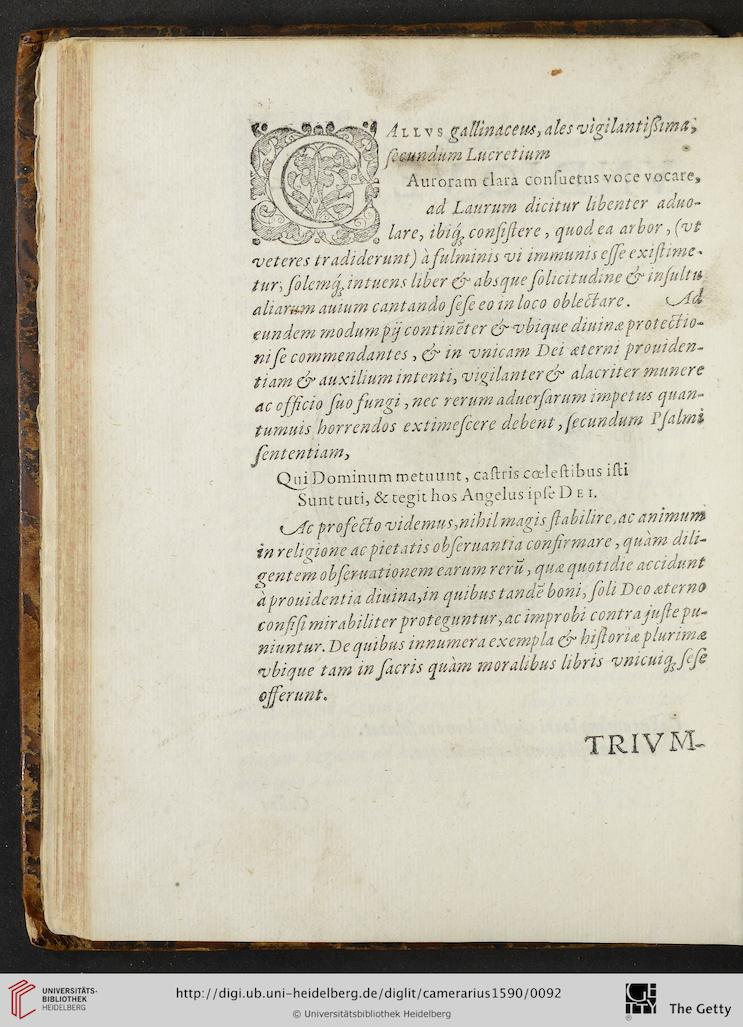 GALLVS gallinaceus, ales vigilantißima,
secundum Lucretium
Auroram clara consuetus voce vocare,
ad Laurum dicitur libenter aduo-
lare, ibiq́; consistere, quod ea arbor, (vt
veteres tradiderunt) à fulminis vi immunis esse existime-
tur, solemq́; intuens liber & absque solicitudine & insultu
aliarum auium cantando sese eo in loco oblectare. Ad
eundem modum pij continẽter & vbique diuinæ protectio-
ni se commendantes, & in vnicam Dei æterni prouiden-
tiam & auxilium intenti, vigilanter & alacriter munere
ac officio suo fungi, nec rerum aduersarum impetus quan-
tumuis horrendos extimescere debent, secundum Psalmi
sententiam,
Qui Dominum metuunt, castris cœlestibus isti
Sunt tuti, & tegit hos Angelus ipse DEI.
Ac profecto videmus, nihil magis stabilire, ac animum
in religione ac pietatis obseruantia confirmare, quàm dili-
gentem obseruationem earum rerũ, quæ quotidie accidunt
à prouidentia diuina, in quibus tandẽ boni, soli Deo æterno
confisi mirabiliter proteguntur, ac improbi contra juste pu-
niuntur. De quibus innumera exempla & historiæ plurimæ
vbique tam in sacris quàm moralibus libris vnicuiq; sese
offerunt.
TRIVM-
UNIVERSITÄTS-
BIBLIOTHEK
HEIDELBERG
http://digi.ub.uni-heidelberg.de/diglit/camerarius1590/0092
© Universitätsbibliothek Heidelberg
GETTY
The Getty